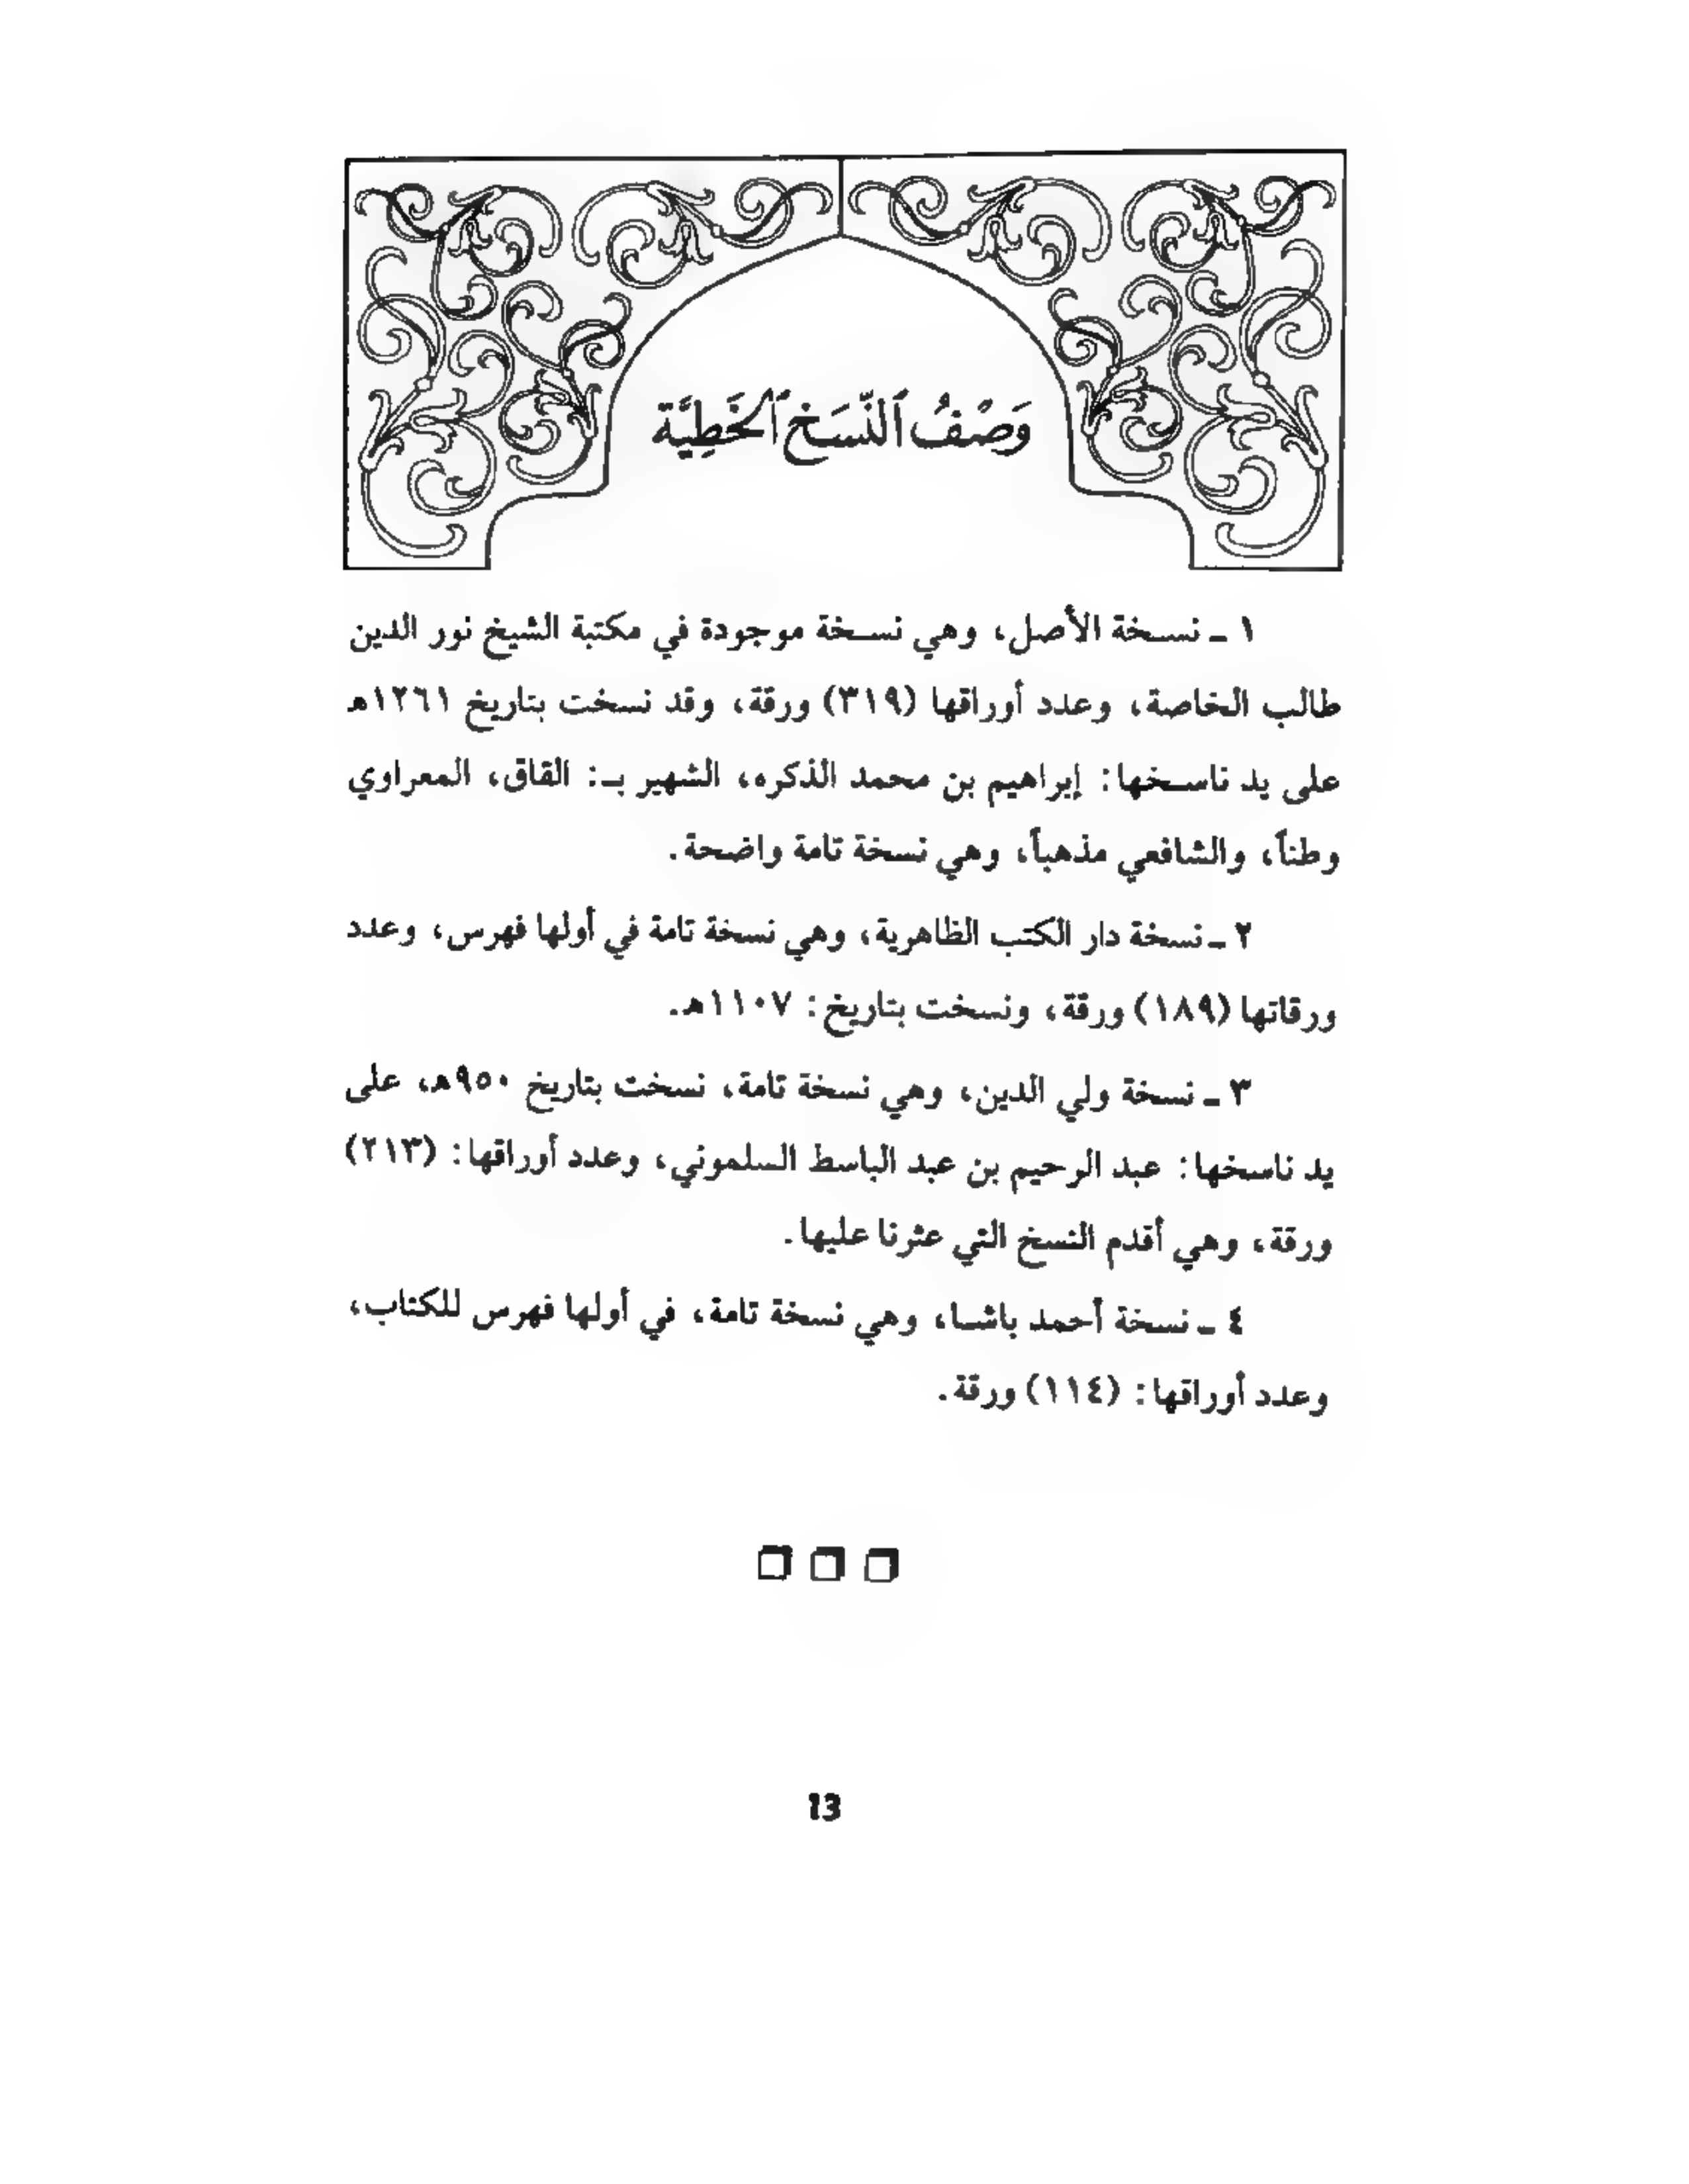 وَصْفُ ٱلنُّسَخِ ٱلخَطِّيَّة
١ ـ نسخة الأصل، وهي نسخة موجودة في مكتبة الشيخ نور الدين
طالب الخاصة، وعدد أوراقها (٣١٩) ورقة، وقد نسخت بتاريخ ١٢٦١هـ
على يد ناسخها: إبراهيم بن محمد الذكره، الشهير بـ: القاق، المعراوي
وطناً، والشافعي مذهباً، وهي نسخة تامة واضحة.
٢ ـ نسخة دار الكتب الظاهرية، وهي نسخة تامة في أولها فهرس، وعدد
ورقاتها (١٨٩) ورقة، ونسخت بتاريخ: ١١٠٧هـ.
٣ ـ نسخة ولي الدين، وهي نسخة تامة، نسخت بتاريخ ٩٥٠هـ، على
يد ناسخها: عبد الرحيم بن عبد الباسط السلموني، وعدد أوراقها: (٢١٣)
ورقة، وهي أقدم النسخ التي عثرنا عليها.
٤ ـ نسخة أحمد باشا، وهي نسخة تامة، في أولها فهرس للكتاب،
وعدد أوراقها: (١١٤) ورقة.
13